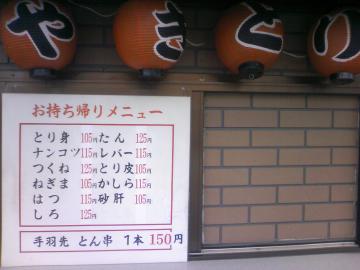 やきとり
お持ち帰りメニュー
とり身 105円 たん 125円
ナンコツ 115円 レバー 115円
つくね 125円 とり皮 105円
ねぎま 105円 かしら 115円
はつ 115円 砂肝 105円
しろ 125円
手羽先 とん串 1本 150円